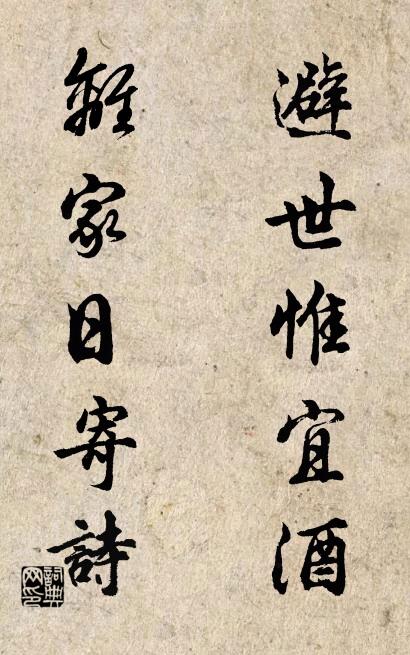 避世惟宜酒
離家日寄詩
詞典網印